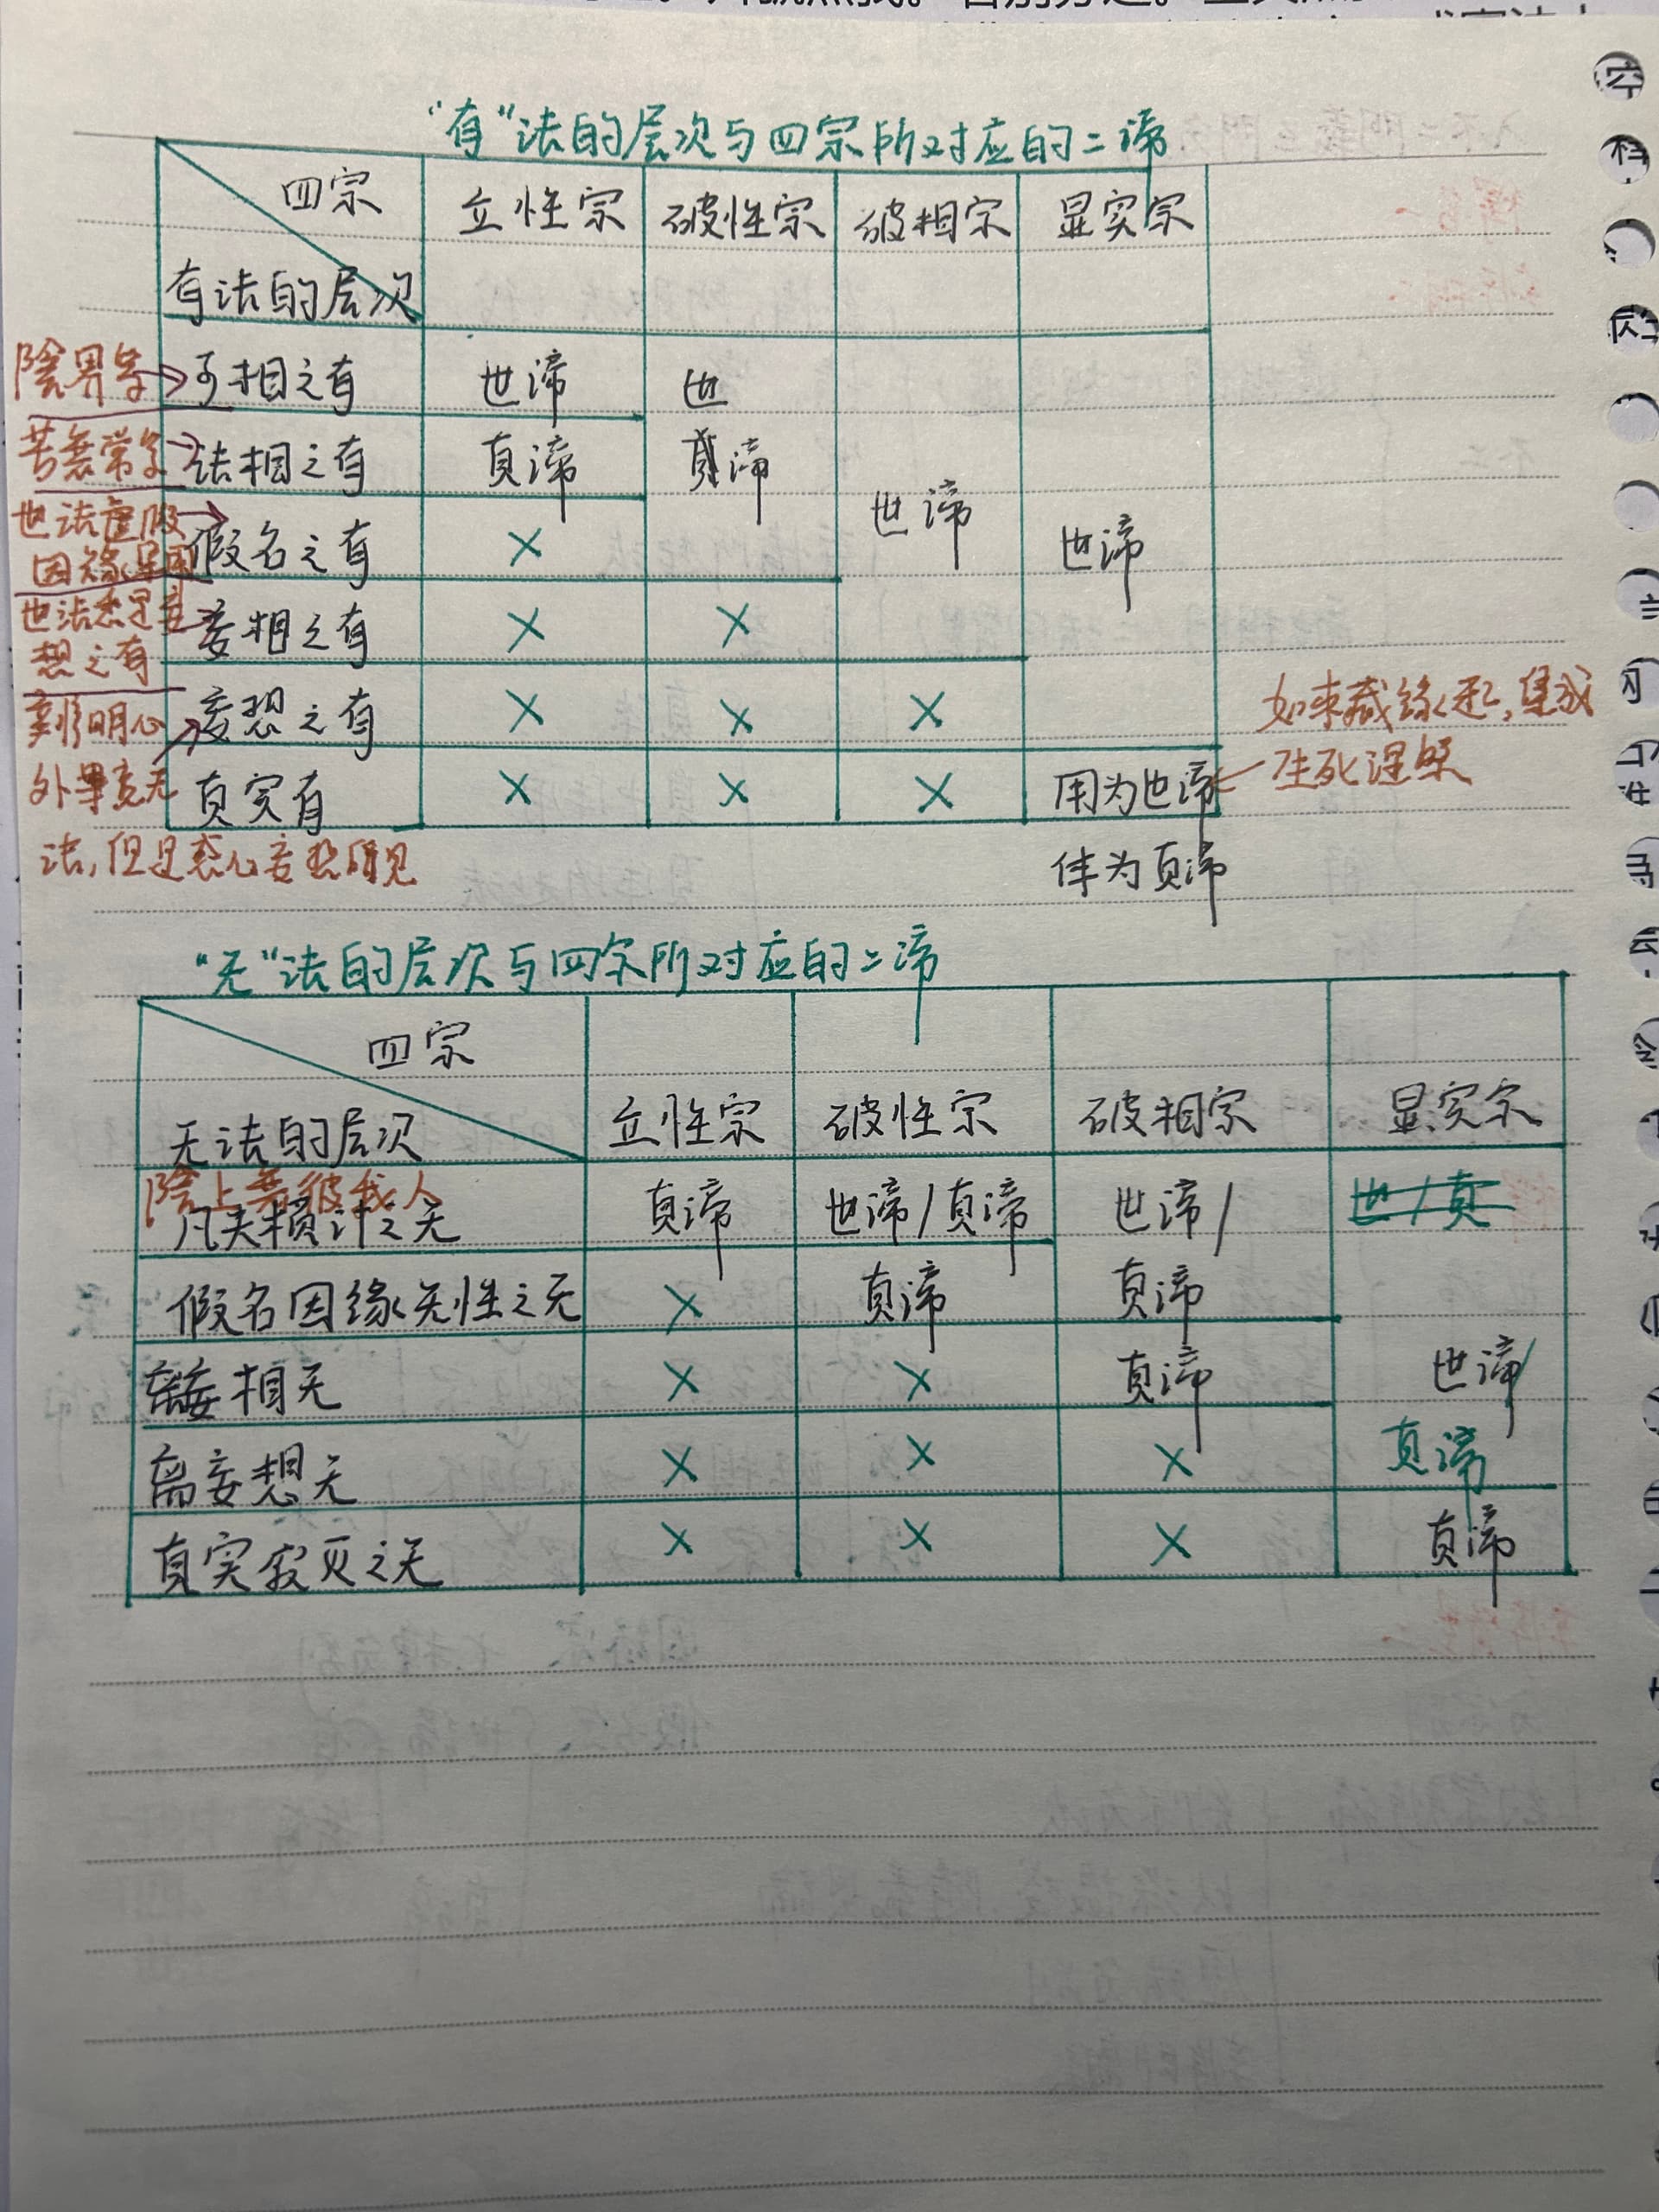 “有”法的层次与四宗所对应的二谛
四宗 立性宗 破性宗 破相宗 显实宗
有法的层次
陰界等 事相之有 世谛 世
苦無常等 法相之有 真谛 真谛
世法虛假 假名之有 × 世谛 世谛
因緣
世法悉是妄 妄相之有 × ×
想之有
妄想之有 × × × 如来藏缘起,集成
明心
外畢竟无 真实有 × × × 用为世谛 生死涅槃
法,但是惑心妄想所见 体为真谛
“无”法的层次与四宗所对应的二谛
四宗
无法的层次 立性宗 破性宗 破相宗 显实宗
陰上無彼我人
凡夫横计之无 真谛 世谛/真谛 世谛/ 世/真
假名因缘无性之无 × 真谛 真谛
离妄相无 × × 真谛 世谛/
离妄想无 × × × 真谛
真实寂灭之无 × × × 真谛